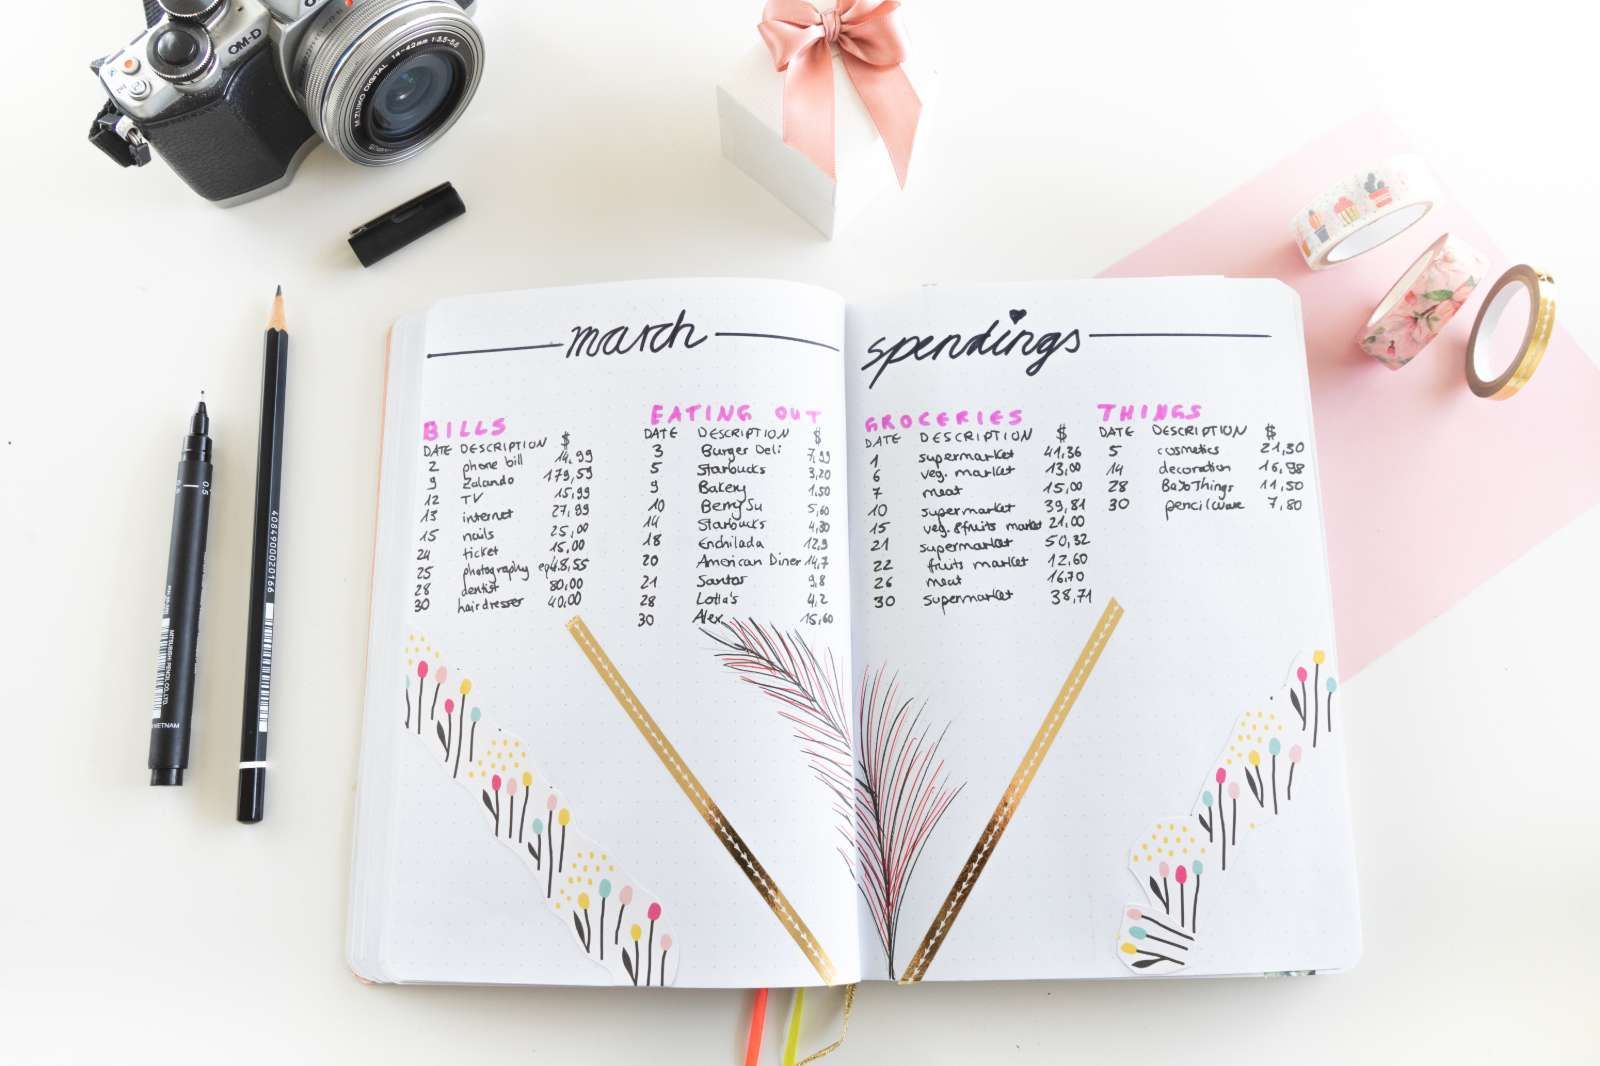 OM-D
M.ZUIKO DIGITAL 14-42mm 1:3.5-5.6
0.5
MITSUBISHI PENCIL CO., LTD.
VIETNAM
4084900020166
march
spendings
BILLS
DATE DESCRIPTION $
2 phone bill 14,99
9 Zalando 179,59
12 TV 15,99
13 internet 27,99
15 nails 25,00
24 ticket 15,00
25 photography eq 48,55
28 dentist 80,00
30 hairdresser 40,00
EATING OUT
DATE DESCRIPTION $
3 Burger Deli 7,99
5 Starbucks 3,20
9 Bakery 1,50
10 BerrySu 5,60
14 Starbucks 4,30
18 Enchilada 12,9
20 American Diner 14,7
21 Santos 9,8
28 Lotta's 4,2
30 Alex 15,60
GROCERIES
DATE DESCRIPTION $
1 supermarket 41,36
6 veg. market 13,00
7 meat 15,00
10 supermarket 39,81
15 veg.&fruits market 21,00
21 supermarket 50,32
22 fruits market 12,60
26 meat 16,70
30 supermarket 38,71
THINGS
DATE DESCRIPTION $
5 cosmetics 21,30
14 decoration 16,98
28 BaYoThings 11,50
30 pencilcase 7,80